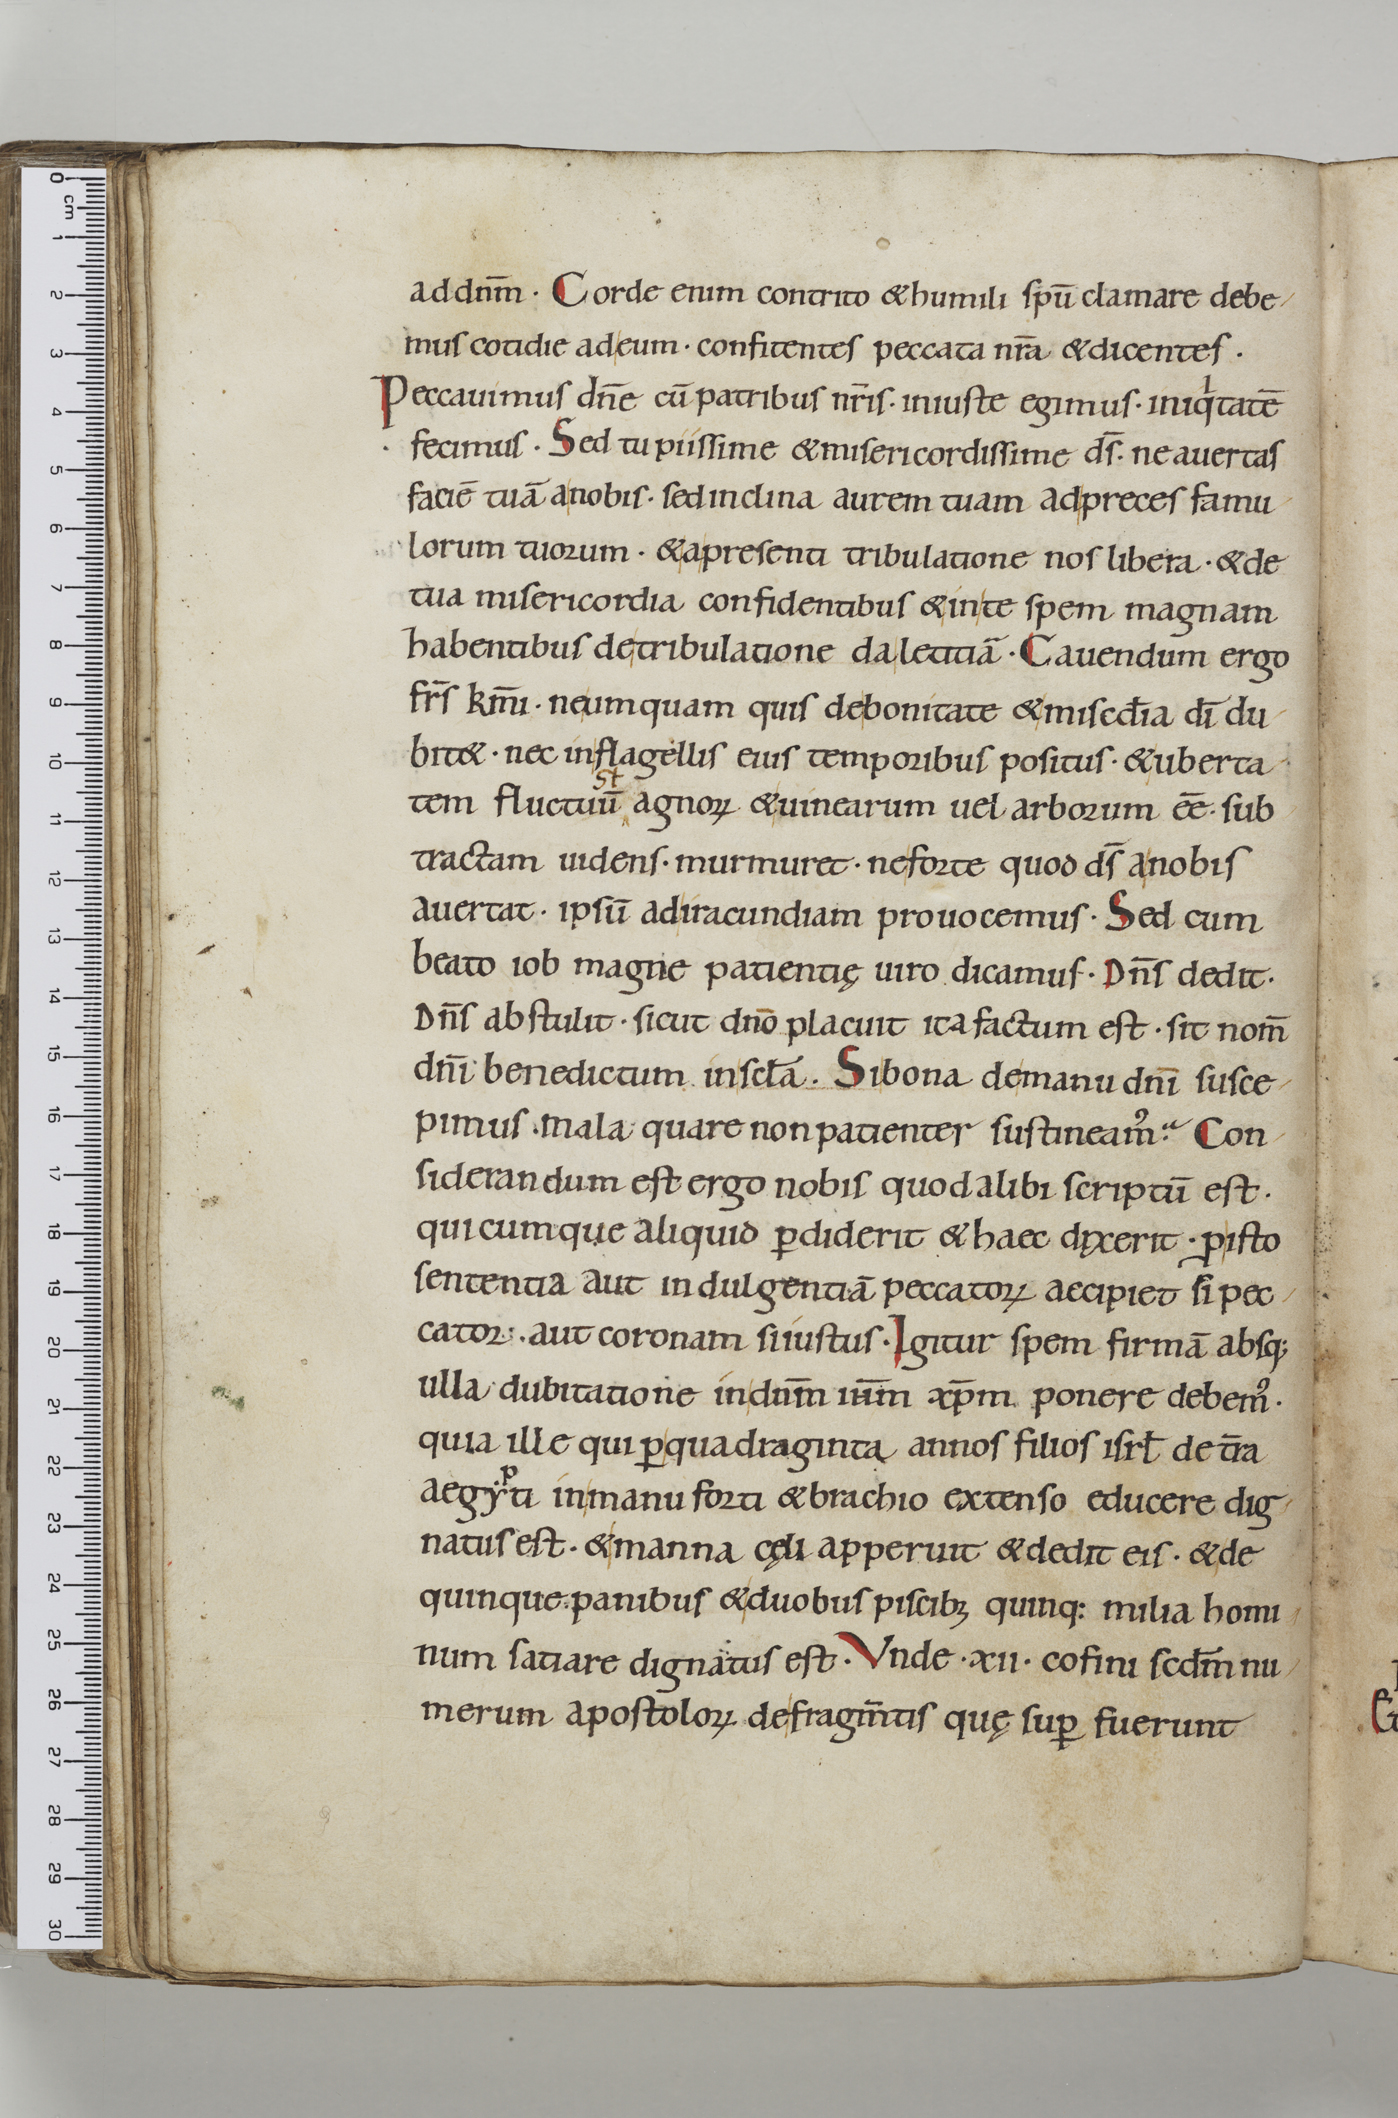 ad dnm̄ · Corde enim contrito & humili spū clamare debe
mus cotidie ad eum · confitentes peccata nr̄a & dicentes ·
Peccauimus dn̄e cū patribus nr̄is · iniuste egimus · iniqͥtatē
fecimus · Sed tu piissime & misericordissime ds̄ · ne auertas
faciē tuā a nobis · sed inclina aurem tuam ad preces famu
lorum tuorum · & a presenti tribulatione nos libera · & de
tua misericordia confidentibus & in te spem magnam
habentibus de tribulatione da letitiā · Cauendum ergo
fr̄s km̄i · ne umquam quis de bonitate & misedīa dī du
bit& · nec in flagellis eius temporibus positus · & uberta
tem fluctuū agnoꝝ & uinearum uel arborum ēē · sub
tractam uidens · murmuret · ne forte quod ds̄ a nobis
auertat · ipsū ad iracundiam prouocemus · Sed cum
beato iob magne patientię uiro dicamus · Dn̄s dedit ·
Dn̄s abstulit · sicut dnō placuit ita factum est · sit nom̄
dnī benedictum in sclā · Si bona de manu dnī susce
pimus · mala quare non patienter sustineamꝰ · Con
siderandum est ergo nobis quod alibi scriptū est ·
quicumque aliquid ꝑdiderit & haec dixerit · ꝓ isto
sententia aut indulgentiā peccatoꝝ accipiet si pec
cator · aut coronam si iustus · Igitur spem firmā absq;
ulla dubitatione in dnm̄ ihm̄ xpm̄ ponere debemꝰ ·
quia ille qui ꝑ quadraginta annos filios isrl̄ de tr̄a
aegypti in manu forti & brachio extenso educere dig
natus est · & manna cęli apperuit & dedit eis · & de
quinque panibus & duobus piscibꝫ quinq; milia homi
num satiare dignatus est · Vnde · xii · cofini scdm̄ nu
merum apostoloꝝ de fragm̄tis quę suꝑ fuerunt